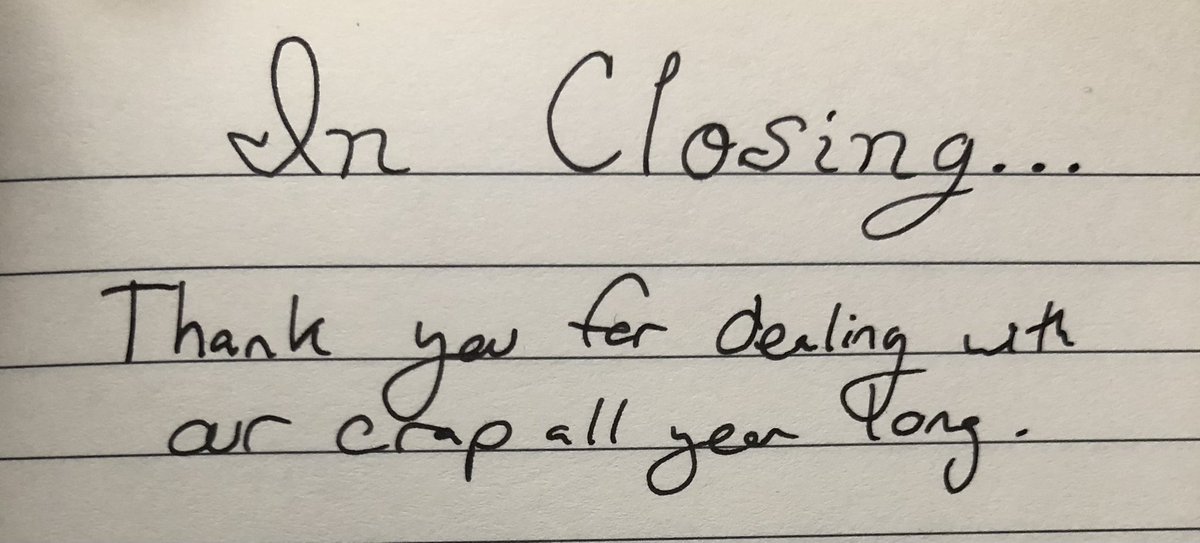 In Closing...
Thank you for dealing with
our crap all year long.